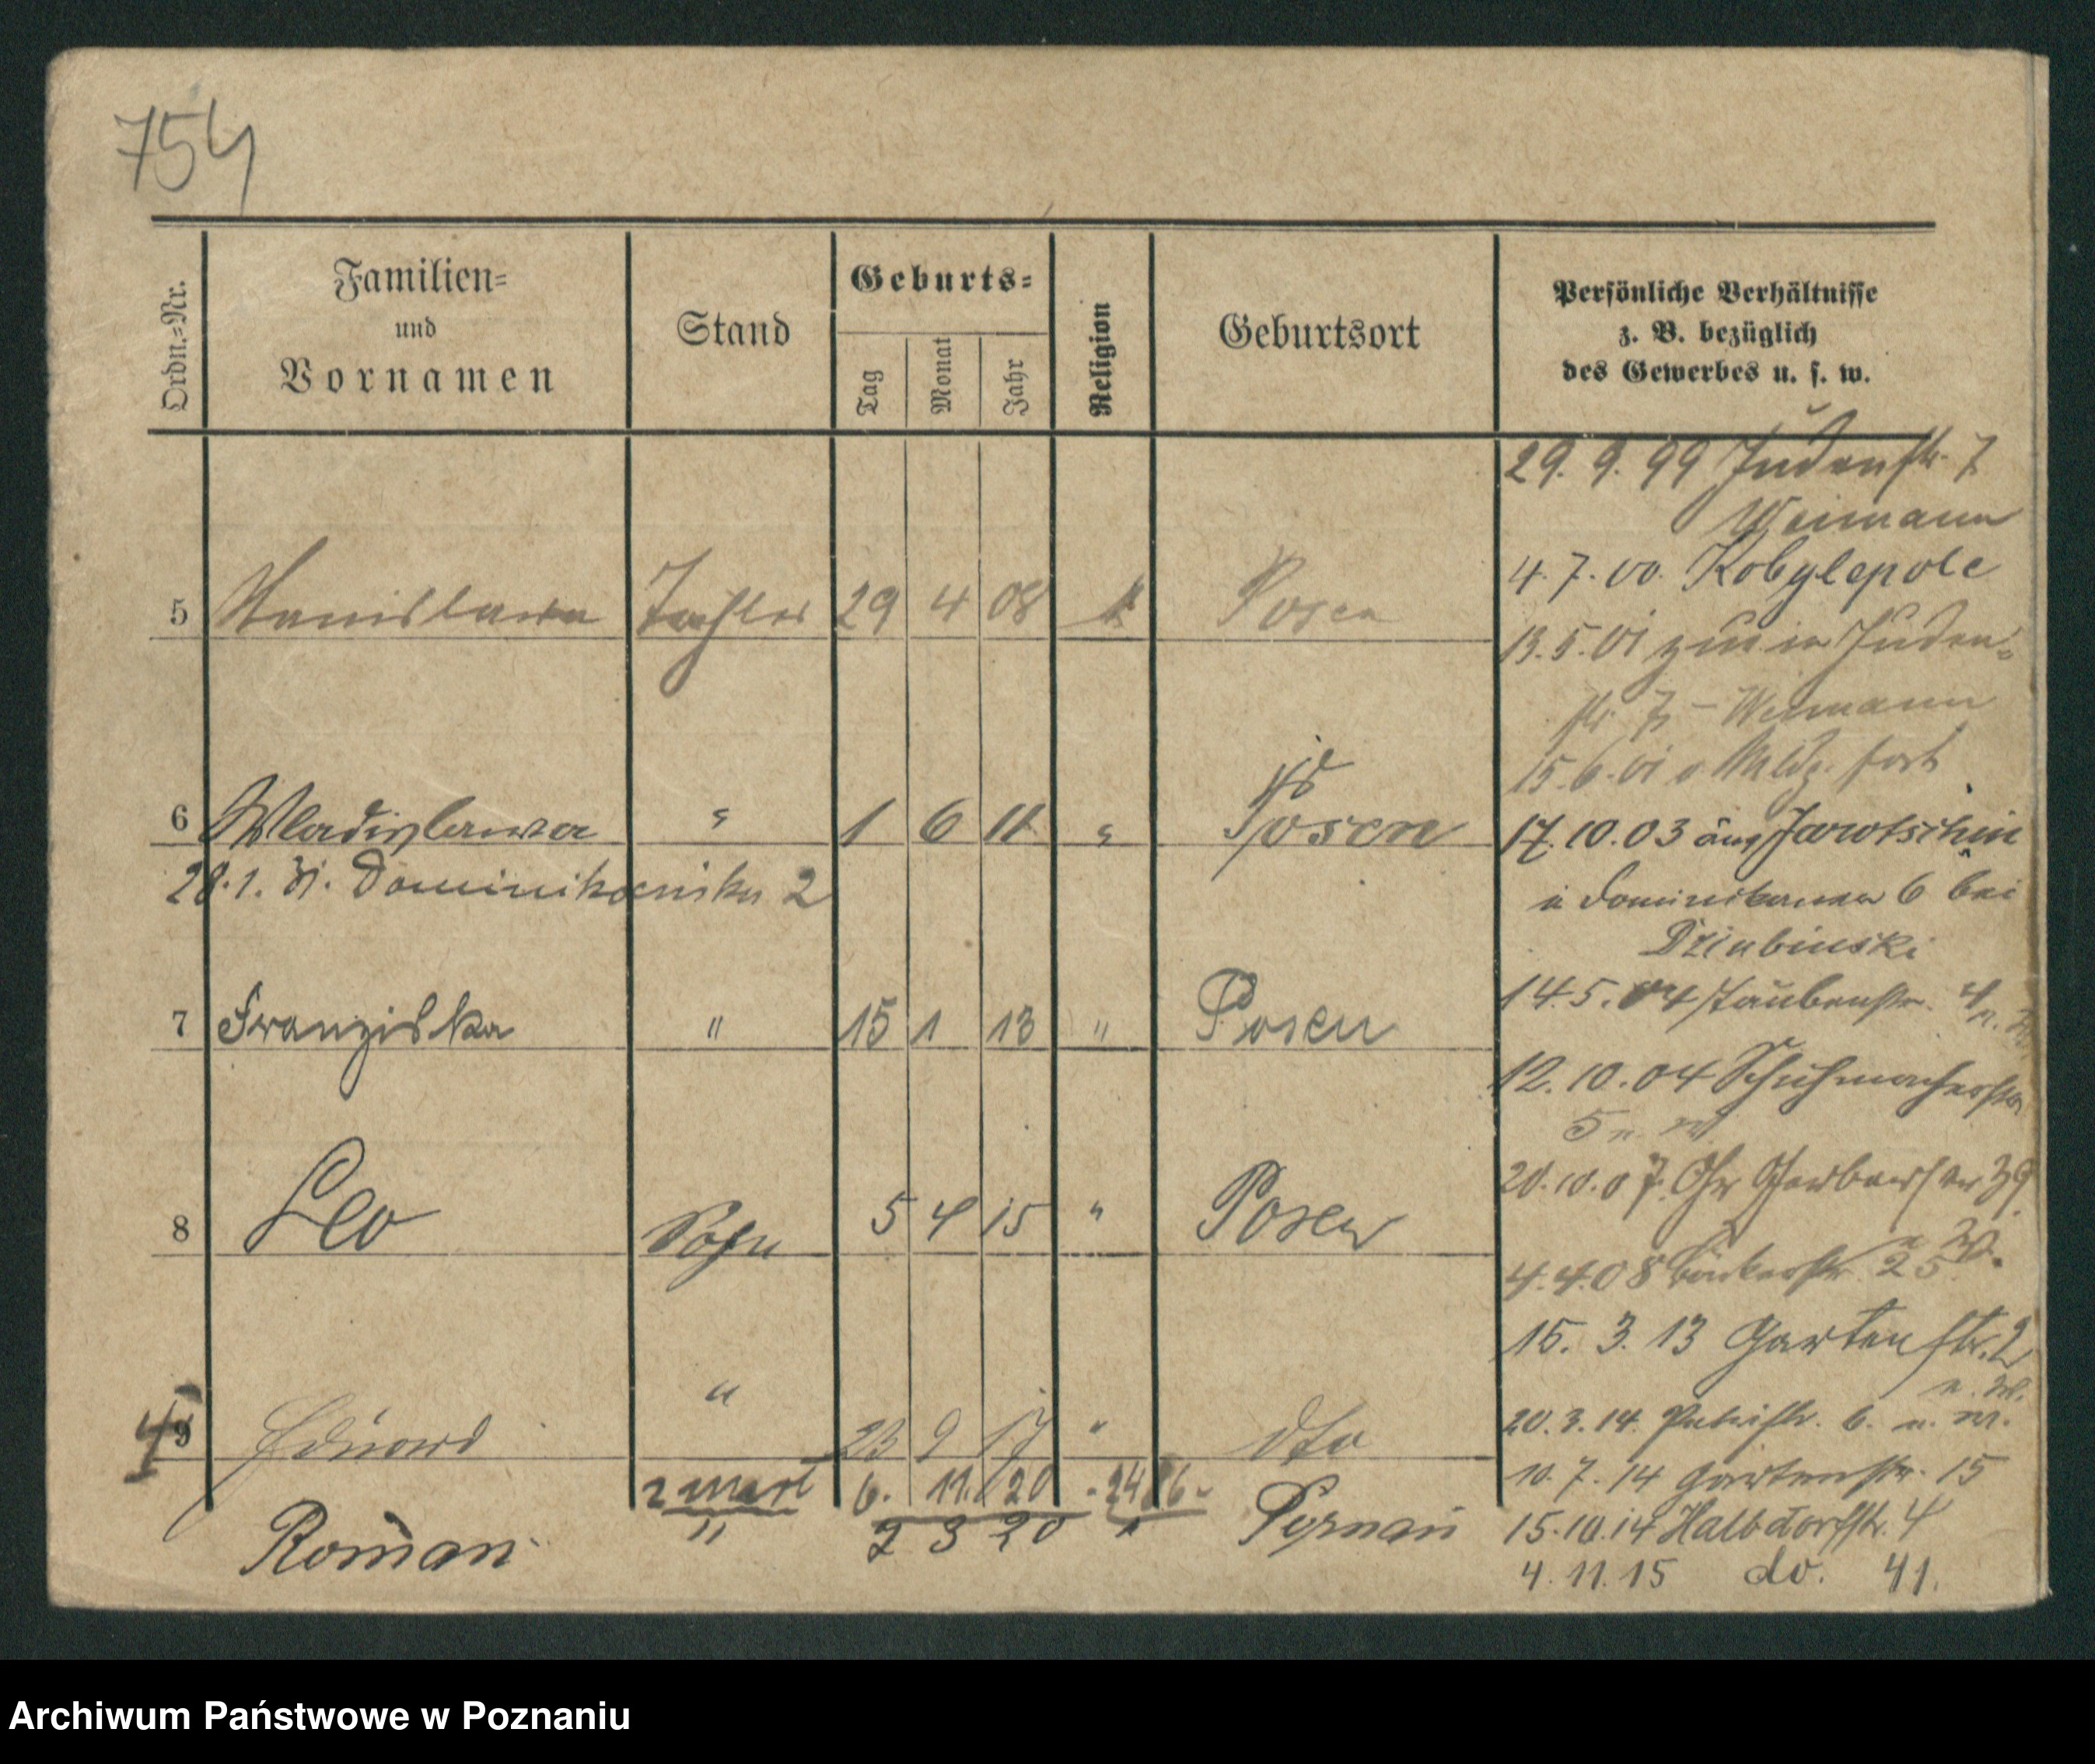 754
Ordn.-Nr.
Familien-
und
Vornamen
Stand
Geburts-
Tag
Monat
Jahr
Religion
Geburtsort
Persönliche Verhältnisse
z. B. bezüglich
des Gewerbes u. s. w.
29. 9. 99 Judenstr. 7
Weimann
4. 7. 00. Kobylepole
5 Stanislawa Tochter 29 4 08 k Posen
13. 5. 01 zur. in Juden-
str. 7 - Weimann
15. 6. 01 fort
6 Wladislawa " 1 6 11 " Posen
17. 10. 03 aus Jarotschin
28. 1. 31. Dominikańska 2
Dominikaner 6 bei
Dziubinski
14. 5. 04 Taubenstr. 4
7 Franziska " 15 1 13 " Posen
12. 10. 04 Schuhmacherstr
5
20. 10. 07. Gr Gerberstr 39
8 Leo Sohn 5 4 15 " Posen
4. 4. 08 Bäckerstr. 25
15. 3. 13 Gartenstr. 2
9 Eduard " 23 9 17 " dto
20. 3. 14. 6.
10. 7. 14 Gartenstr. 15
6. 11. 20
Roman " 2 3 20 " Poznań
15. 10. 14 Halbdorfstr. 4
4. 11. 15 do. 41.
Archiwum Państwowe w Poznaniu